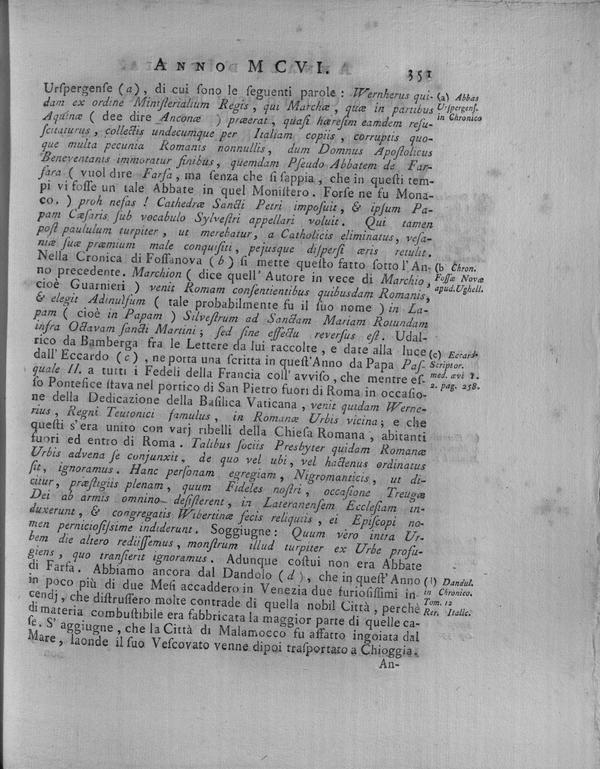 ANNO MCVI. 351
Urſpergenſe (a), di cui ſono le ſeguenti parole: Wernherus qui-
dam ex ordine Miniſterialium Regis, qui Marchæ, quæ in partibus
Aquinæ ( dee dire Anconæ ) præerat, quaſi hæreſim eamdem reſu-
ſcitaturus, collectis undecumque per Italiam copiis, corruptis quo-
que multa pecunia Romanis nonnullis, dum Domnus Apoſtolicus
Beneventanis immoratur finibus, quemdam Pſeudo Abbatem de Far-
fara ( vuol dire Farfa, ma ſenza che ſi ſappia, che in queſti tem-
pi vi foſſe un tale Abbate in quel Moniſtero. Forſe ne fu Mona-
co. ) proh nefas! Cathedræ Sancti Petri impoſuit, & ipſum Pa-
pam Cæſaris ſub vocabulo Sylveſtri appellari voluit. Qui tamen
poſt paululum turpiter, ut merebatur, a Catholicis eliminatus, veſa-
niæ ſuæ præmium male conquiſiti, pejuſque diſperſi æris retulit.
Nella Cronica di Foſſanova (b) ſi mette queſto fatto ſotto l'An-
no precedente. Marchion ( dice quell' Autore in vece di Marchio,
cioè Guarnieri ) venit Romam conſentientibus quibusdam Romanis,
& elegit Adinulfum ( tale probabilmente fu il ſuo nome ) in La-
pam ( cioè in Papam ) Silveſtrum ad Sanctam Mariam Rotundam
infra Octavam ſancti Martini; ſed ſine effectu reverſus eſt. Udal-
rico da Bamberga fra le Lettere da lui raccolte, e date alla luce
dall'Eccardo (c), ne porta una ſcritta in queſt'Anno da Papa Paſ-
quale II. a tutti i Fedeli della Francia coll' avviſo, che mentre eſ-
ſo Pontefice ſtava nel portico di San Pietro fuori di Roma in occaſio-
ne della Dedicazione della Baſilica Vaticana, venit quidam Werne-
rius, Regni Teutonici famulus, in Romanæ Urbis vicina; e che
queſti s'era unito con varj ribelli della Chieſa Romana, abitanti
fuori ed entro di Roma. Talibus ſociis Presbyter quidam Romanæ
Urbis advena ſe conjunxit, de quo vel ubi, vel hactenus ordinatus
ſit, ignoramus. Hanc perſonam egregiam, Nigromanticis, ut di-
citur, præſtigiis plenam, quum Fideles noſtri, occaſione Treugæ
Dei ab armis omnino deſiſterent, in Lateranenſem Eccleſiam in-
duxerunt, & congregatis Wibertinæ fecis reliquiis, ei Epiſcopi no-
men pernicioſiſſime indiderunt. Soggiugne: Quum vero intra Ur-
bem die altero rediiſſemus, monſtrum illud turpiter ex Urbe profu-
giens, quo tranſierit ignoramus. Adunque coſtui non era Abbate
di Farfa. Abbiamo ancora dal Dandolo (d), che in queſt'Anno
in poco più di due Meſi accaddero in Venezia due furioſiſſimi in-
cendj, che diſtruſſero molte contrade di quella nobil Città, perchè
di materia combuſtibile era fabbricata la maggior parte di quelle ca-
ſe. S'aggiugne, che la Città di Malamocco fu affatto ingoiata dal
Mare, laonde il ſuo Veſcovato venne dipoi traſportato a Chioggia.
An-
(a) Abbas
Urſpergenſ.
in Chronico
(b Chron.
Foſſæ Novæ
apud.Ughell.
(c) Eccard
Scriptor.
med. ævi T.
2. pag. 258.
(d) Dandul.
in Chronico.
Tom. 12
Rer. Italic.